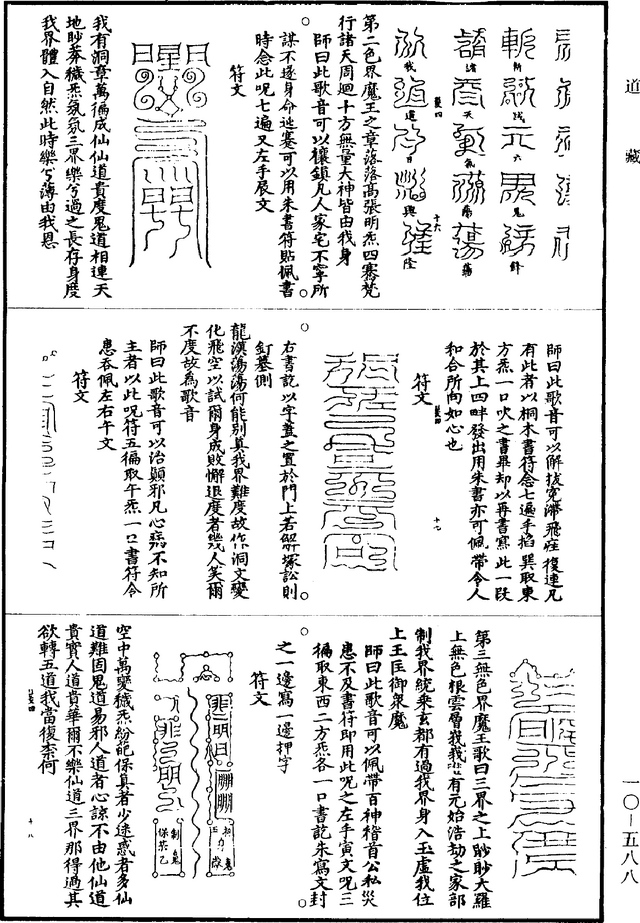 道藏
斬馘六鬼鋒
諸天炁蕩蕩
我道日興隆
十六
第二色界魔王之章落落高張明炁四騫梵
行諸天周迴十方無量大神皆由我身
師曰此歌音可以禳鎮凡人家宅不寧所
謀不遂身命迍蹇可以用朱書符貼佩書
時念此呪七遍又左手辰文
符文
我有洞章萬徧成仙仙道貴度鬼道相連天
地眇莽穢炁氛氛三界樂兮過之長存身度
我界體入自然此時樂兮薄由我恩
師曰此歌音可以解拔冤滯飛疰復連凡
有此者以桐木書符念七遍手掐巽取東
方炁一口吹之書畢却以再書寫此一段
於其上四畔發出用朱書亦可佩帶令人
和合所向如心也
符文
十七
右書訖以字蓋之置於門上若解塚訟則
釘墓側
龍漢蕩蕩何能別真我界難度故作洞文變
化飛空以試爾身成敗懈退度者幾人笑爾
不度故為歌音
師曰此歌音可以治顛邪凡心病不知所
主者以此呪符五徧取午炁一口書符令
患吞佩左右午文
符文
第三無色界魔王歌曰三界之上眇眇大羅
上無色根雲層峩峩有元始浩劫之家部
制我界統乘玄都有過我界身入玉虛我位
上王匡御衆魔
師曰此歌音可以佩帶百神稽首公私災
患不及書符即用此呪之左手寅文呪三
徧取東西二方炁各一口書訖朱寫文封
之一邊寫一邊押字
符文
空中萬變穢炁紛葩保真者少迷惑者多仙
道難固鬼道易邪人道者心諒不由他仙道
貴實人道貴華爾不樂仙道三界那得過其
欲轉五道我當復奈何
十八
一〇—五八八